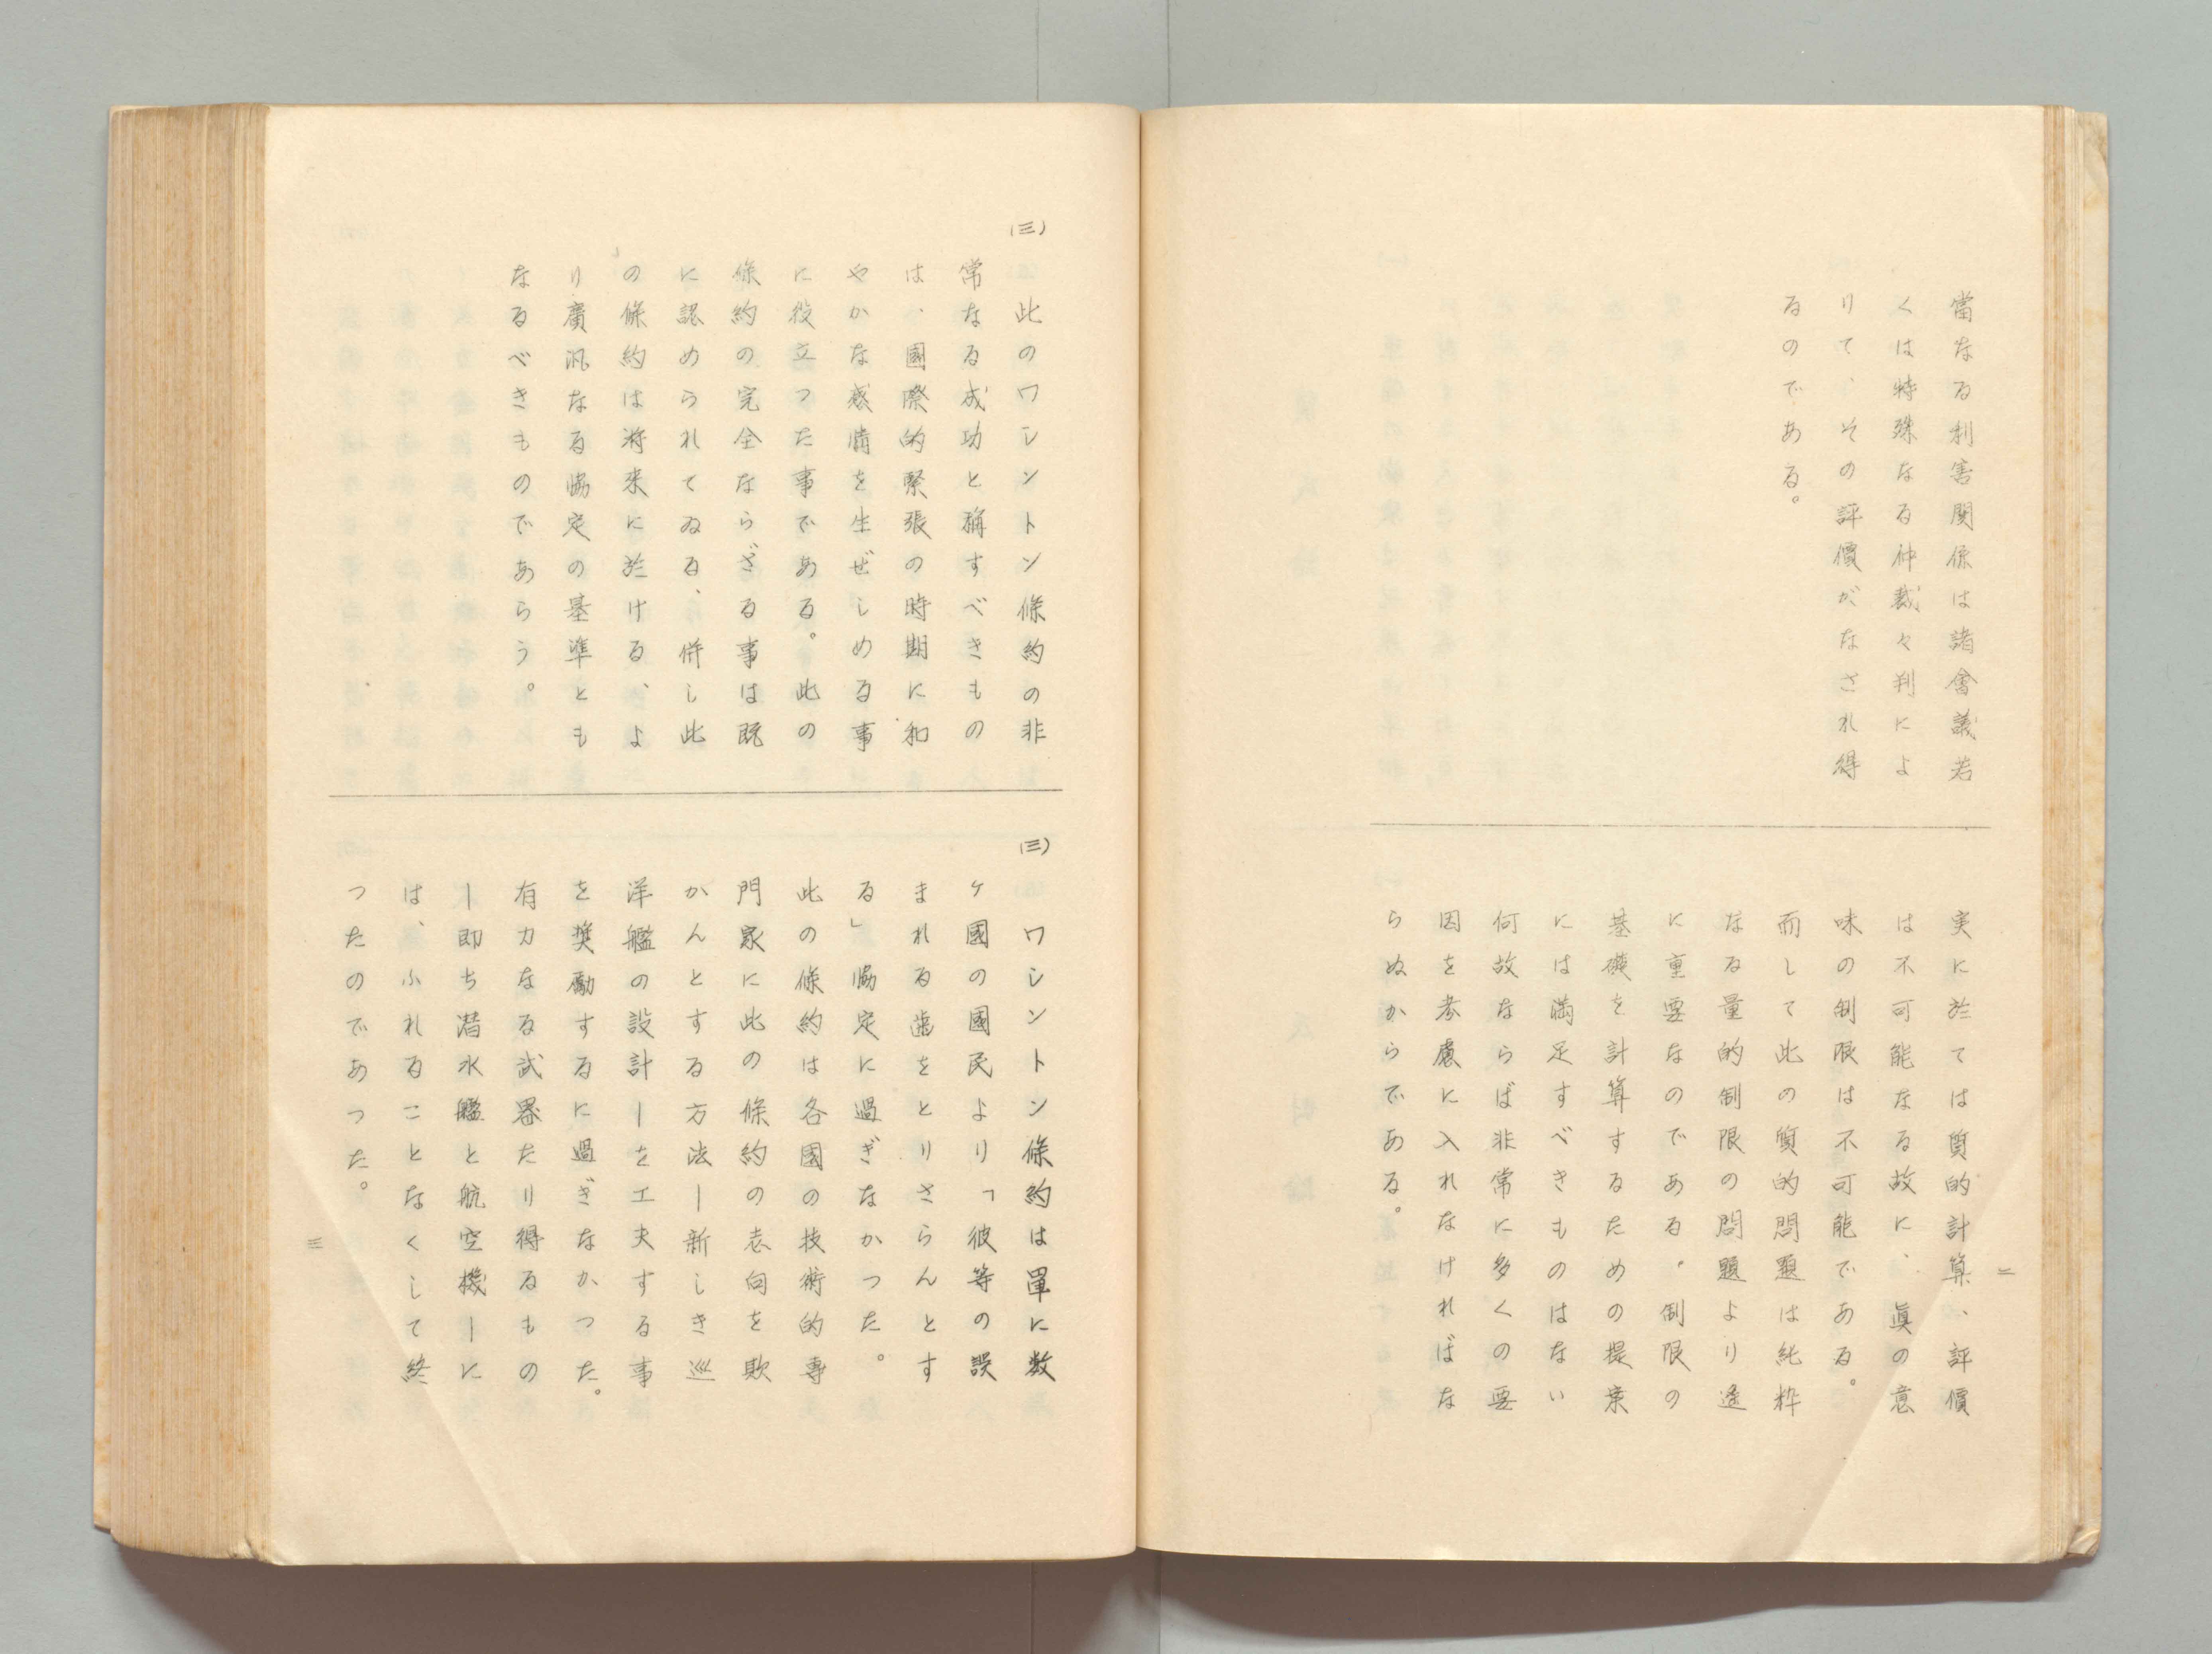 當なる利害関係は諸會議若
くは特殊なる仲裁々判によ
りて、その評價がなされ得
るのである。
実に於ては質的計算、評價
は不可能なる故に、眞の意
味の制限は不可能である。
而して此の質的問題は純粋
なる量的制限の問題より遙
に重要なのである。制限の
基礎を計算するための提案
には満足すべきものはない
何故ならば非常に多くの要
因を考慮に入れなければな
らぬからである。
二
(三)
此のワシントン條約の非
常なる成功と稱すべきもの
は、國際的緊張の時期に和
やかな感情を生ぜしめる事
に役立つた事である。此の
條約の完全ならざる事は既
に認められてゐる、併し此
の條約は将来に於ける、よ
り廣汎なる協定の基準とも
なるべきものであらう。
(三)
ワシントン條約は單に数
ケ國の國民より「彼等の誤
まれる歯をとりさらんとす
る」協定に過ぎなかつた。
此の條約は各國の技術的專
門家に此の條約の志向を欺
かんとする方法ー新しき巡
洋艦の設計ーを工夫する事
を奨勵するに過ぎなかつた。
有力なる武器たり得るもの
ー即ち潜水艦と航空機ーに
は、ふれることなくして終
つたのであつた。
三